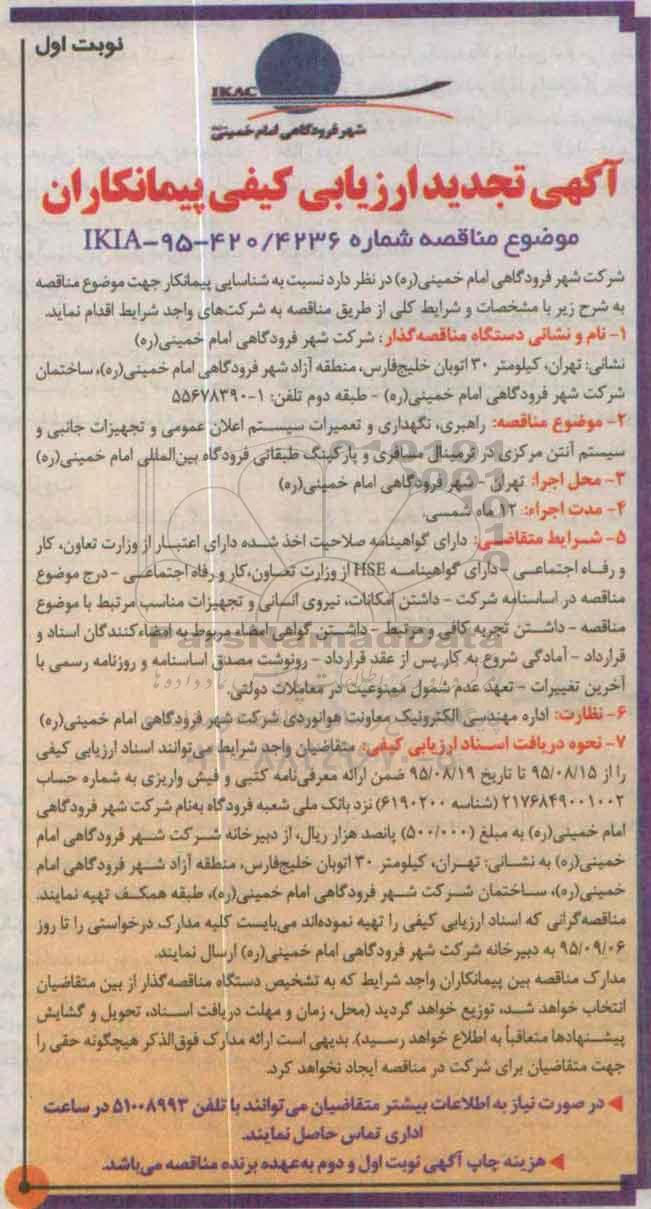 نوبت اول
IKAC
شهر فرودگاهی امام خمینی
آگهی تجدید ارزیابی کیفی پیمانکاران
موضوع مناقصه شماره IKIA-۹۵-۴۲۰/۴۲۳۶
شرکت شهر فرودگاهی امام خمینی(ره) در نظر دارد نسبت به شناسایی پیمانکار جهت موضوع مناقصه
به شرح زیر با مشخصات و شرایط کلی از طریق مناقصه به شرکت‌های واجد شرایط اقدام نماید.
۱- نام و نشانی دستگاه مناقصه‌گذار: شرکت شهر فرودگاهی امام خمینی(ره)
نشانی: تهران، کیلومتر ۳۰ اتوبان خلیج‌فارس، منطقه آزاد شهر فرودگاهی امام خمینی(ره)، ساختمان
شرکت شهر فرودگاهی امام خمینی(ره) - طبقه دوم تلفن: ۱-۵۵۶۷۸۳۹۰
۲- موضوع مناقصه: راهبری، نگهداری و تعمیرات سیستم اعلان عمومی و تجهیزات جانبی و
سیستم آنتن مرکزی در ترمینال مسافری و پارکینگ طبقاتی فرودگاه بین‌المللی امام خمینی(ره)
۳- محل اجرا: تهران - شهر فرودگاهی امام خمینی(ره)
۴- مدت اجراء: ۱۲ ماه شمسی.
۵- شرایط متقاضی: دارای گواهینامه صلاحیت اخذ شده دارای اعتبار از وزارت تعاون، کار
و رفاه اجتماعی - دارای گواهینامه HSE از وزارت تعاون، کار و رفاه اجتماعی - درج موضوع
مناقصه در اساسنامه شرکت - داشتن امکانات، نیروی انسانی و تجهیزات مناسب مرتبط با موضوع
مناقصه - داشتن تجربه کافی و مرتبط - داشتن گواهی امضاء مربوط به امضاء‌کنندگان اسناد و
قرارداد - آمادگی شروع به کار پس از عقد قرارداد - رونوشت مصدق اساسنامه و روزنامه رسمی با
آخرین تغییرات - تعهد عدم شمول ممنوعیت در معاملات دولتی.
۶- نظارت: اداره مهندسی الکترونیک معاونت هوانوردی شرکت شهر فرودگاهی امام خمینی(ره)
۷- نحوه دریافت اسناد ارزیابی کیفی: متقاضیان واجد شرایط می‌توانند اسناد ارزیابی کیفی
را از ۹۵/۰۸/۱۵ تا تاریخ ۹۵/۰۸/۱۹ ضمن ارائه معرفی‌نامه کتبی و فیش واریزی به شماره حساب
۲۱۷۶۸۴۹۰۰۱۰۰۲ (شناسه ۶۱۹۰۲۰۰) نزد بانک ملی شعبه فرودگاه به‌نام شرکت شهر فرودگاهی
امام خمینی(ره) به مبلغ (۵۰۰/۰۰۰) پانصد هزار ریال، از دبیرخانه شرکت شهر فرودگاهی امام
خمینی(ره) به نشانی: تهران، کیلومتر ۳۰ اتوبان خلیج‌فارس، منطقه آزاد شهر فرودگاهی امام
خمینی(ره)، ساختمان شرکت شهر فرودگاهی امام خمینی(ره)، طبقه همکف تهیه نمایند.
مناقصه‌گرانی که اسناد ارزیابی کیفی را تهیه نموده‌اند می‌بایست کلیه مدارک درخواستی را تا روز
۹۵/۰۹/۰۶ به دبیرخانه شرکت شهر فرودگاهی امام خمینی(ره) ارسال نمایند.
مدارک مناقصه بین پیمانکاران واجد شرایط که به تشخیص دستگاه مناقصه‌گذار از بین متقاضیان
انتخاب خواهد شد، توزیع خواهد گردید (محل، زمان و مهلت دریافت اسناد، تحویل و گشایش
پیشنهادها متعاقباً به اطلاع خواهد رسید). بدیهی است ارائه مدارک فوق‌الذکر هیچگونه حقی را
جهت متقاضیان برای شرکت در مناقصه ایجاد نخواهد کرد.
در صورت نیاز به اطلاعات بیشتر متقاضیان می‌توانند با تلفن ۵۱۰۰۸۹۹۳ در ساعت
اداری تماس حاصل نمایند.
هزینه چاپ آگهی نوبت اول و دوم به‌عهده برنده مناقصه می‌باشد.
ParsNamadData